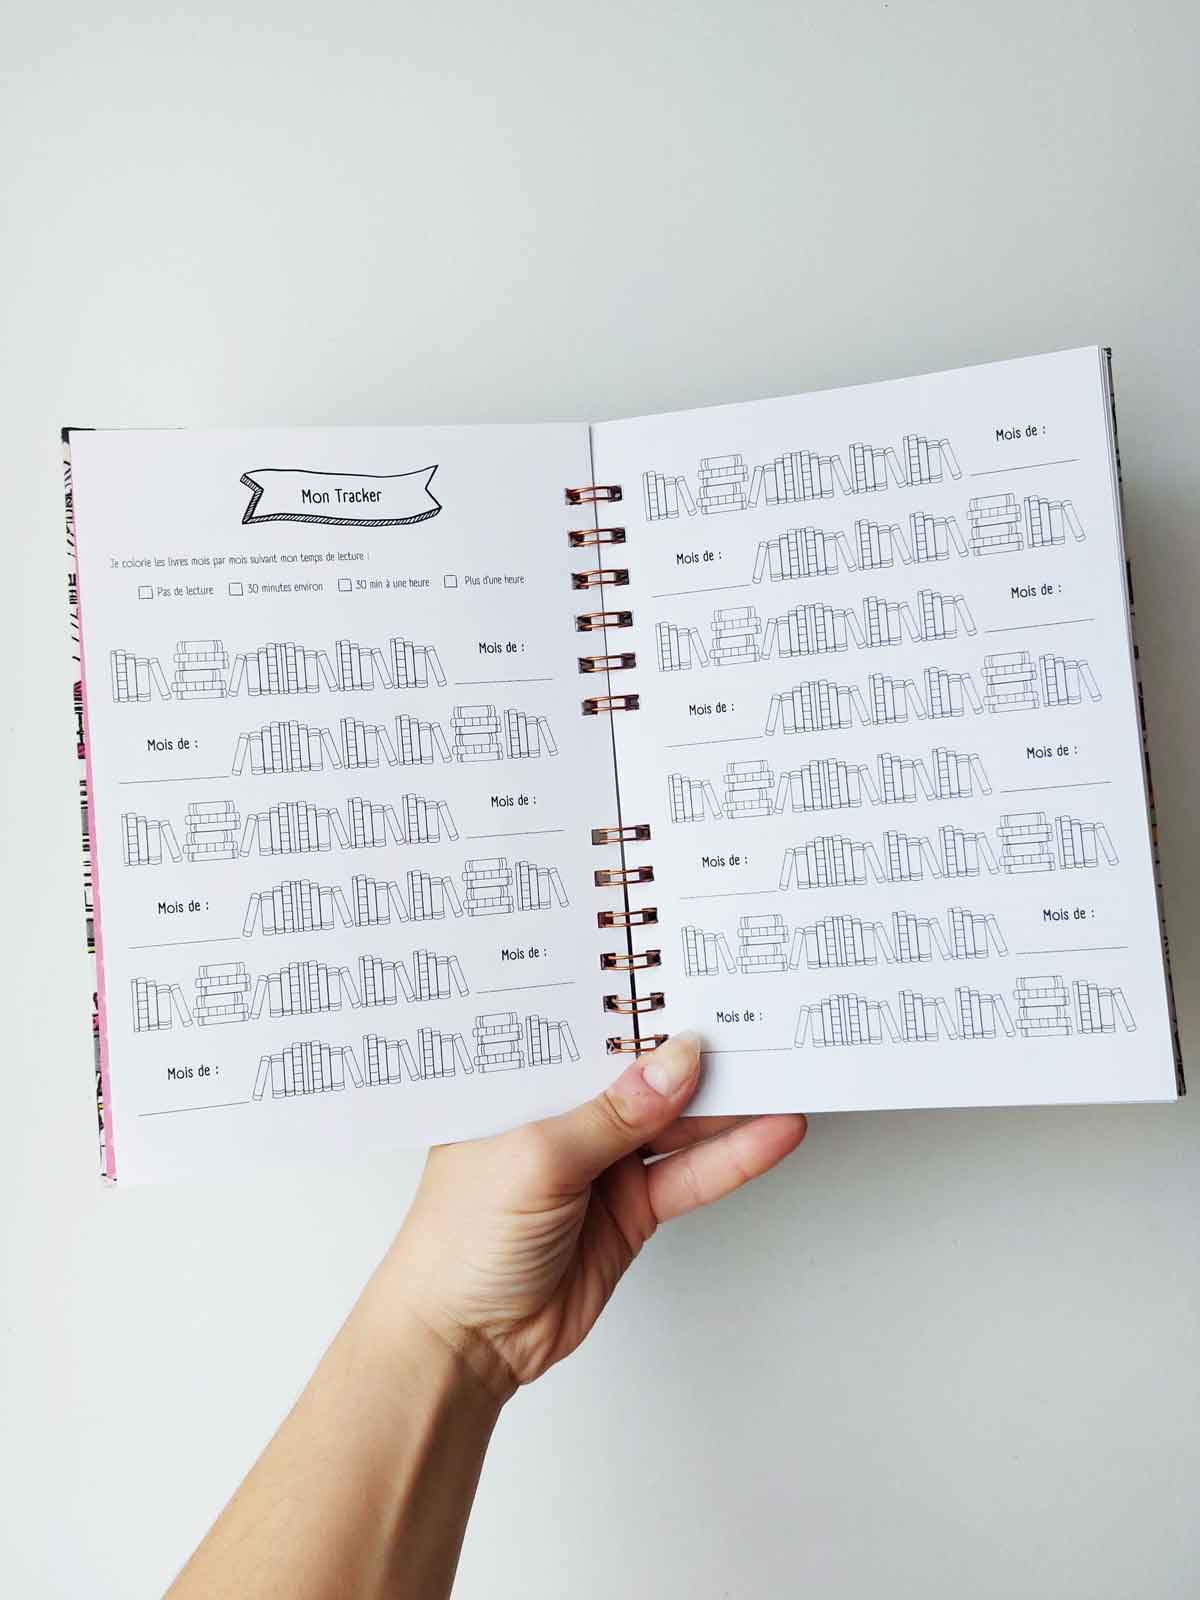 Mon Tracker
Je colorie les livres mois par mois suivant mon temps de lecture :
Pas de lecture 30 minutes environ 30 min à une heure Plus d'une heure
Mois de :
Mois de :
Mois de :
Mois de :
Mois de :
Mois de :
Mois de :
Mois de :
Mois de :
Mois de :
Mois de :
Mois de :
Mois de :
Mois de :